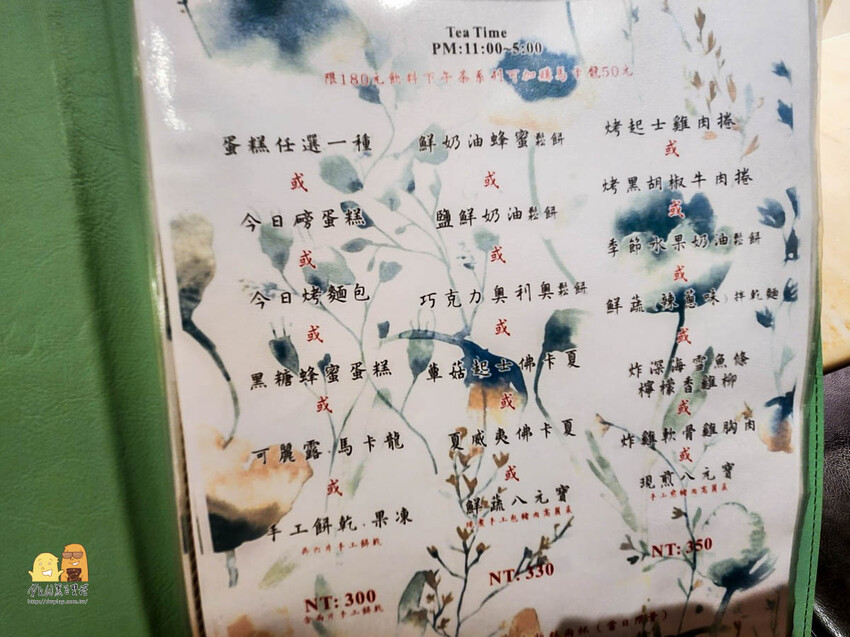 Tea Time
PM:11:00~5:00
限180元飲料下午茶系列可加購馬卡龍50元
蛋糕任選一種
或
今日磅蛋糕
或
今日烤麵包
或
黑糖蜂蜜蛋糕
或
可麗露.馬卡龍
或
手工餅乾.果凍
共六片手工餅乾
NT: 300
含兩片手工餅乾
鮮奶油蜂蜜鬆餅
或
鹽鮮奶油鬆餅
或
巧克力奧利奧鬆餅
或
蕈菇起士佛卡夏
或
夏威夷佛卡夏
或
鮮蔬八元寶
手工包豬肉高麗菜
NT: 330
烤起士雞肉捲
或
烤黑胡椒牛肉捲
或
季節水果奶油鬆餅
或
鮮蔬.辣蔥味)拌乾麵
或
炸深海雪魚條
檸檬香雞柳
或
炸雞軟骨雞胸肉
或
現煎八元寶
手工煎豬肉高麗菜
NT: 350
http://tinylay.com.tw/